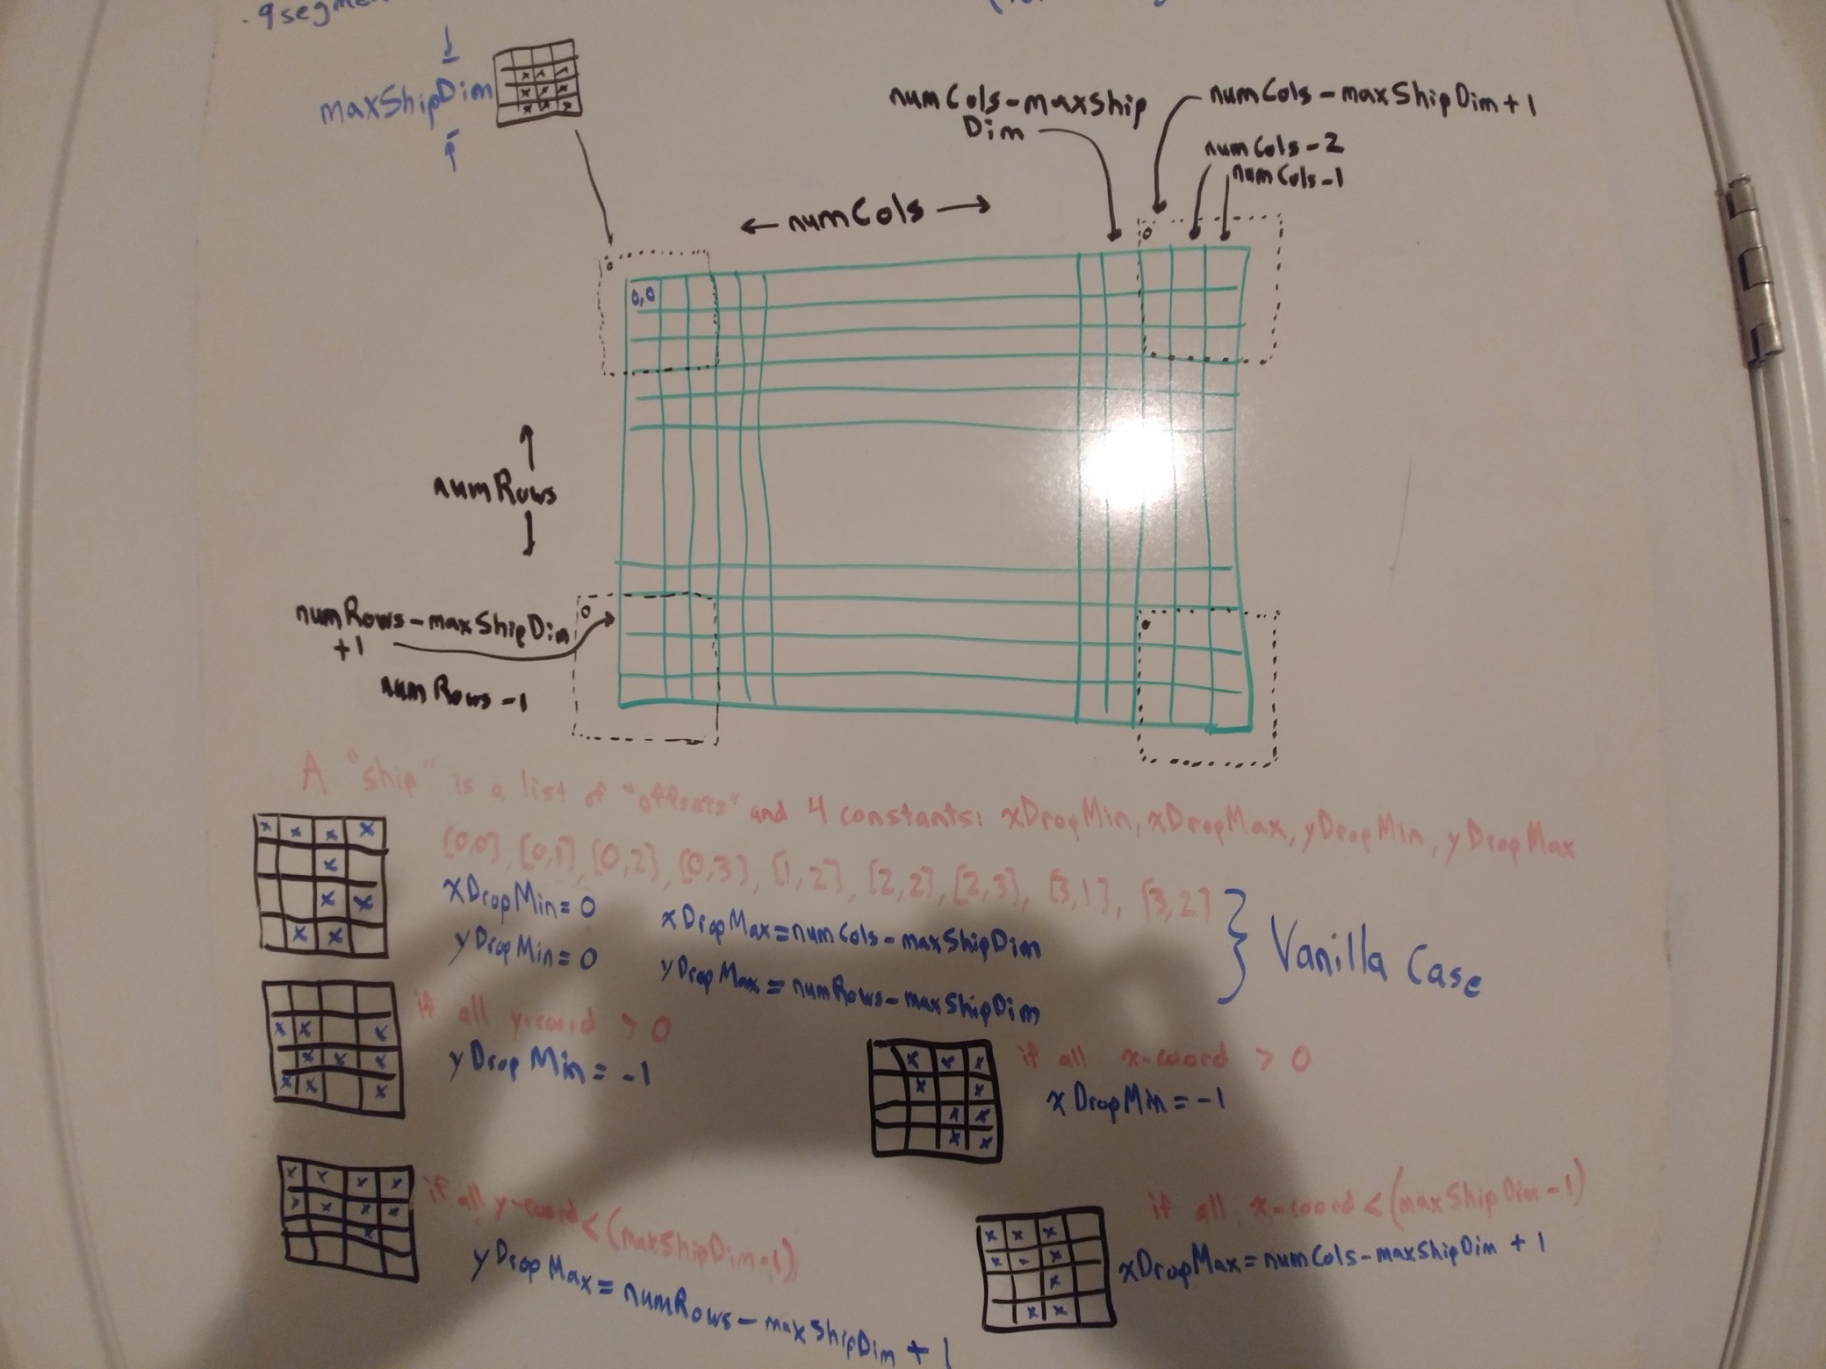 maxShipDim
numCols-maxShip
Dim
numCols-maxShipDim+1
numCols-2
numCols-1
← numCols →
0,0
numRows
numRows-maxShipDim
+1
numRows-1
A "ship" is a list of "offsets" and 4 constants: xDropMin, xDropMax, yDropMin, yDropMax
[0,0], [0,1], [0,2], [0,3], [1,2], [2,2], [2,3], [3,1], [3,2]
xDropMin=0
xDropMax=numCols-maxShipDim
yDropMin=0
yDropMax=numRows-maxShipDim
Vanilla Case
if all y-coord > 0
yDropMin=-1
if all x-coord > 0
xDropMin=-1
if all y-coord<(maxShipDim-1)
yDropMax=numRows-maxShipDim+1
if all x-coord<(maxShipDim-1)
xDropMax=numCols-maxShipDim+1